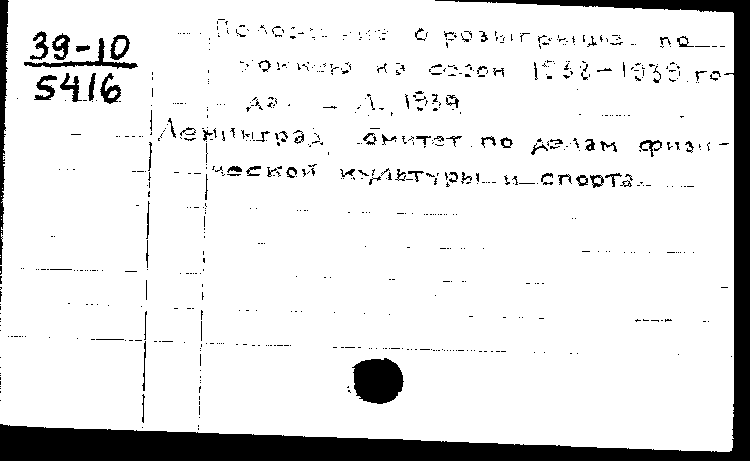 39-10
5416
Положение о розыгрыше по
хоккею на сезон 1938-1939 го-
да. - Л., 1939
Ленинград. комитет по делам физи-
ческой культуры и спорта.